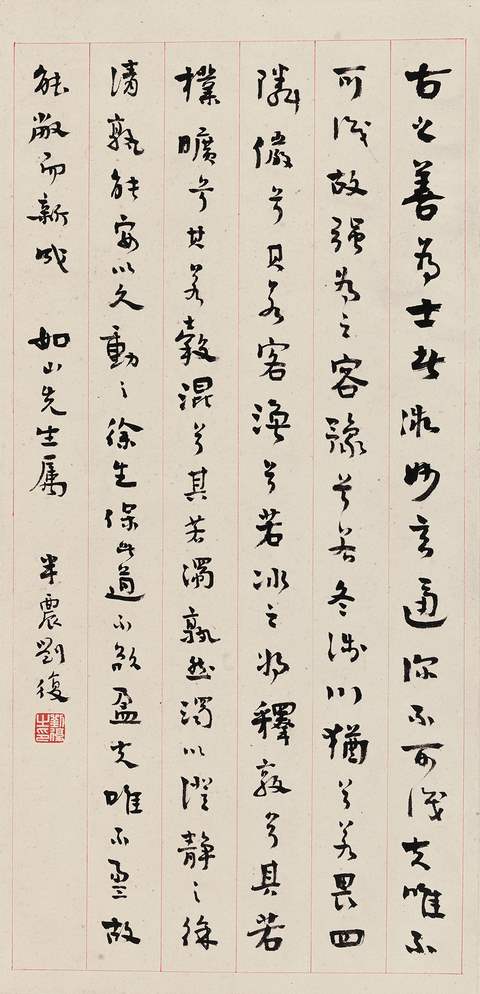 古之善為士者微妙玄通深不可識夫唯不
可識故强為之容豫兮若冬涉川猶兮若畏四
隣儼兮其若客渙兮若冰之將釋敦兮其若
樸曠兮其若穀混兮其若濁孰能濁以澄靜之徐
清孰能安以久動之徐生保此道不欲盈夫唯不盈故
能敝而新成 如山先生屬 半農劉復
劉復之印